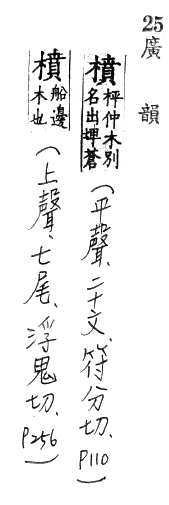 25
廣韻
橨 枰仲木別名出埤蒼 (平聲、二十文、符分切、P110)
橨 船邊木也 (上聲、七尾、浮鬼切、P256)